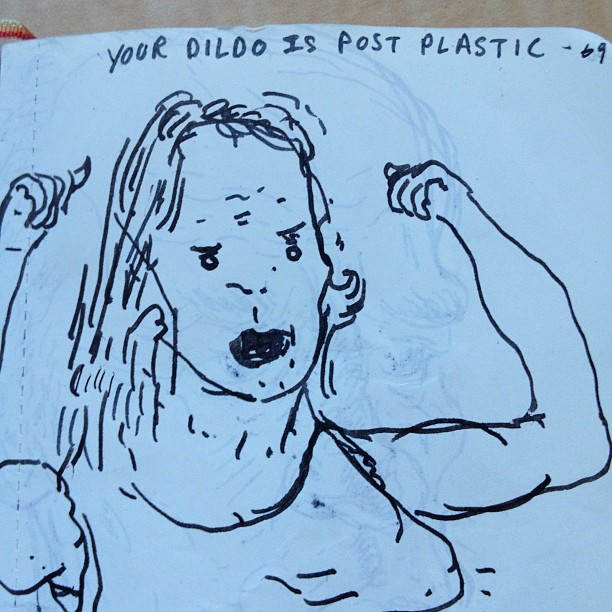 YOUR DILDO IS POST PLASTIC - 69